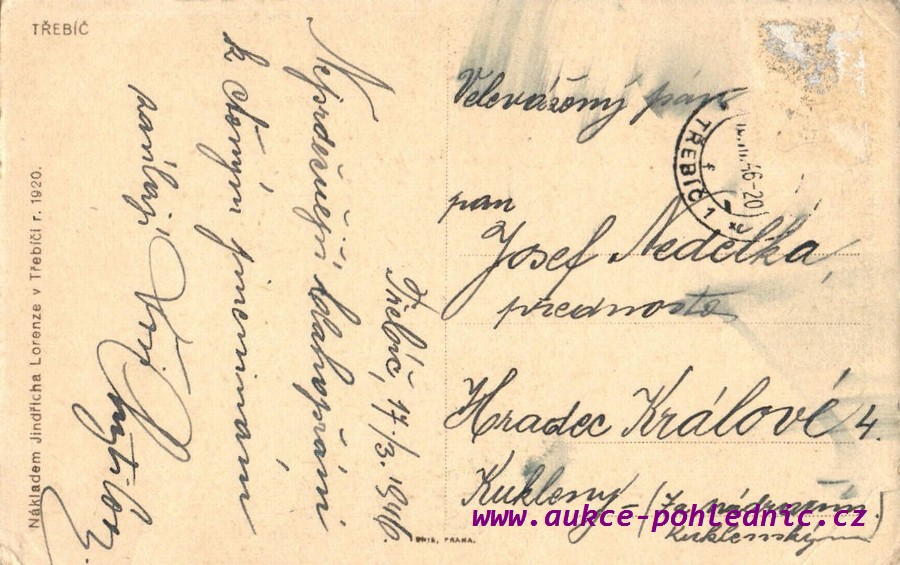 TŘEBÍČ
Nákladem Jindřicha Lorenze v Třebíči r. 1920.
Třebíč, 17/3. 1946.
Nejsrdečnější blahopřání
k Vašym jmeninám
zasílají
Velevážený pán
pan
Josef Nedělka,
přednosta
Hradec Králové 4.
Kukleny – (Za nádražím
Kuklenským)
TŘEBÍČ 1
46-20
UNIE, PRAHA.
www.aukce-pohlednic.cz